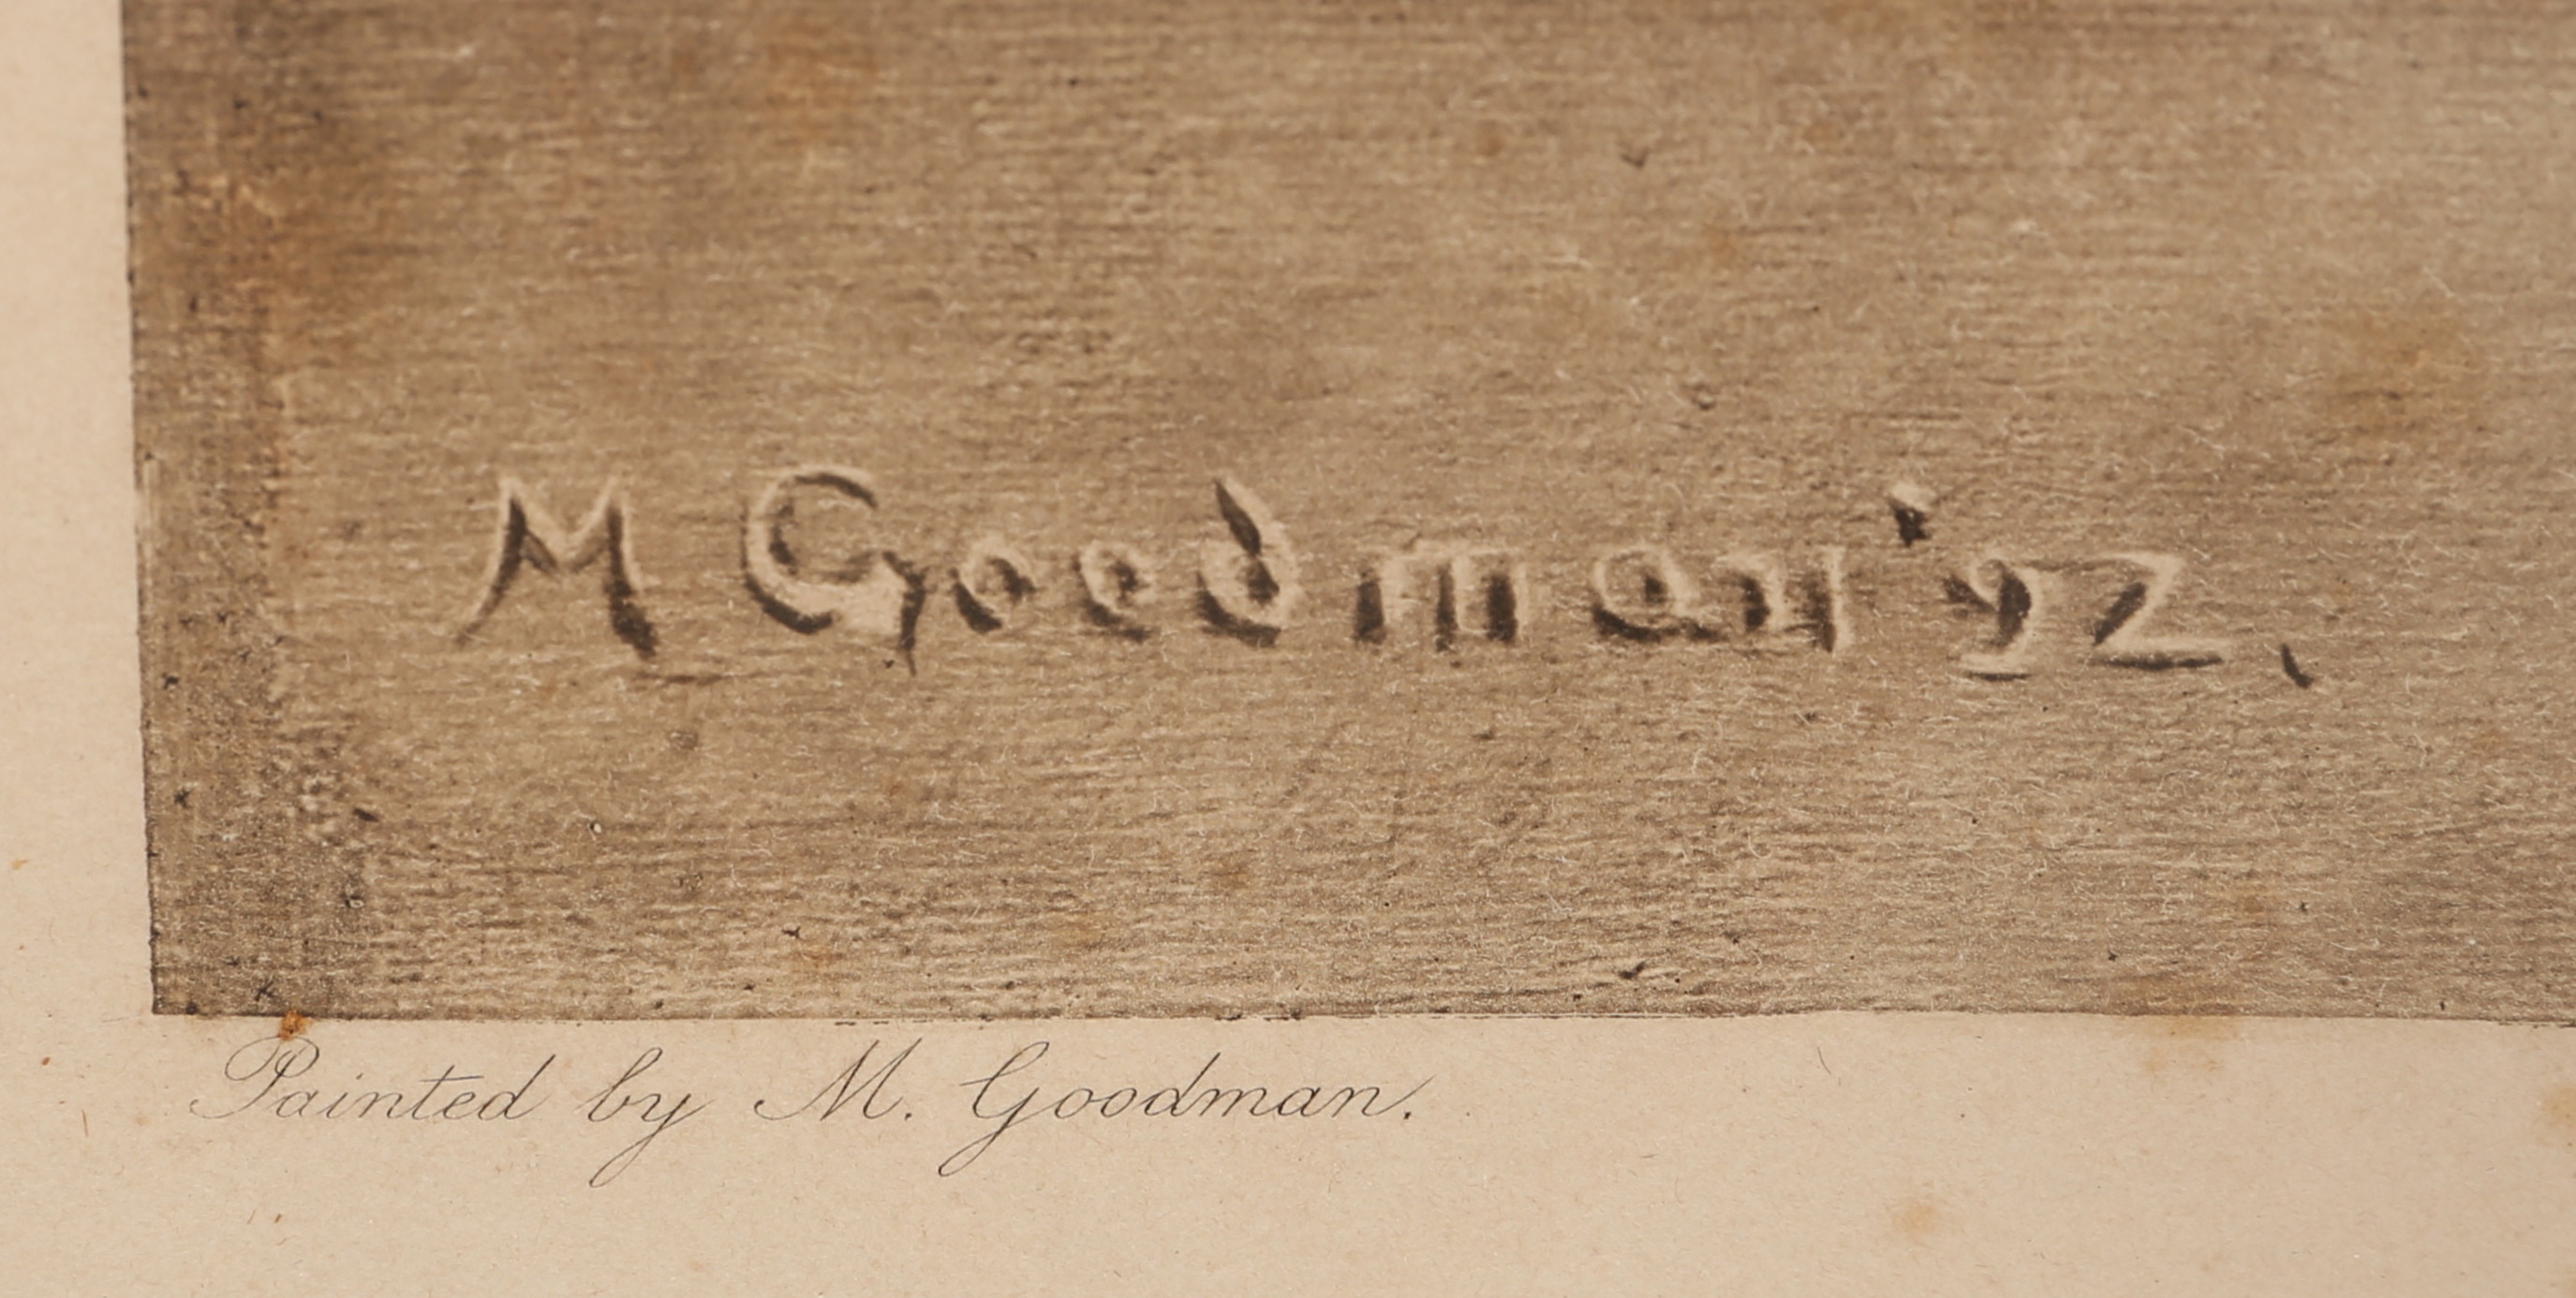 M Goodman '92.
Painted by M. Goodman.